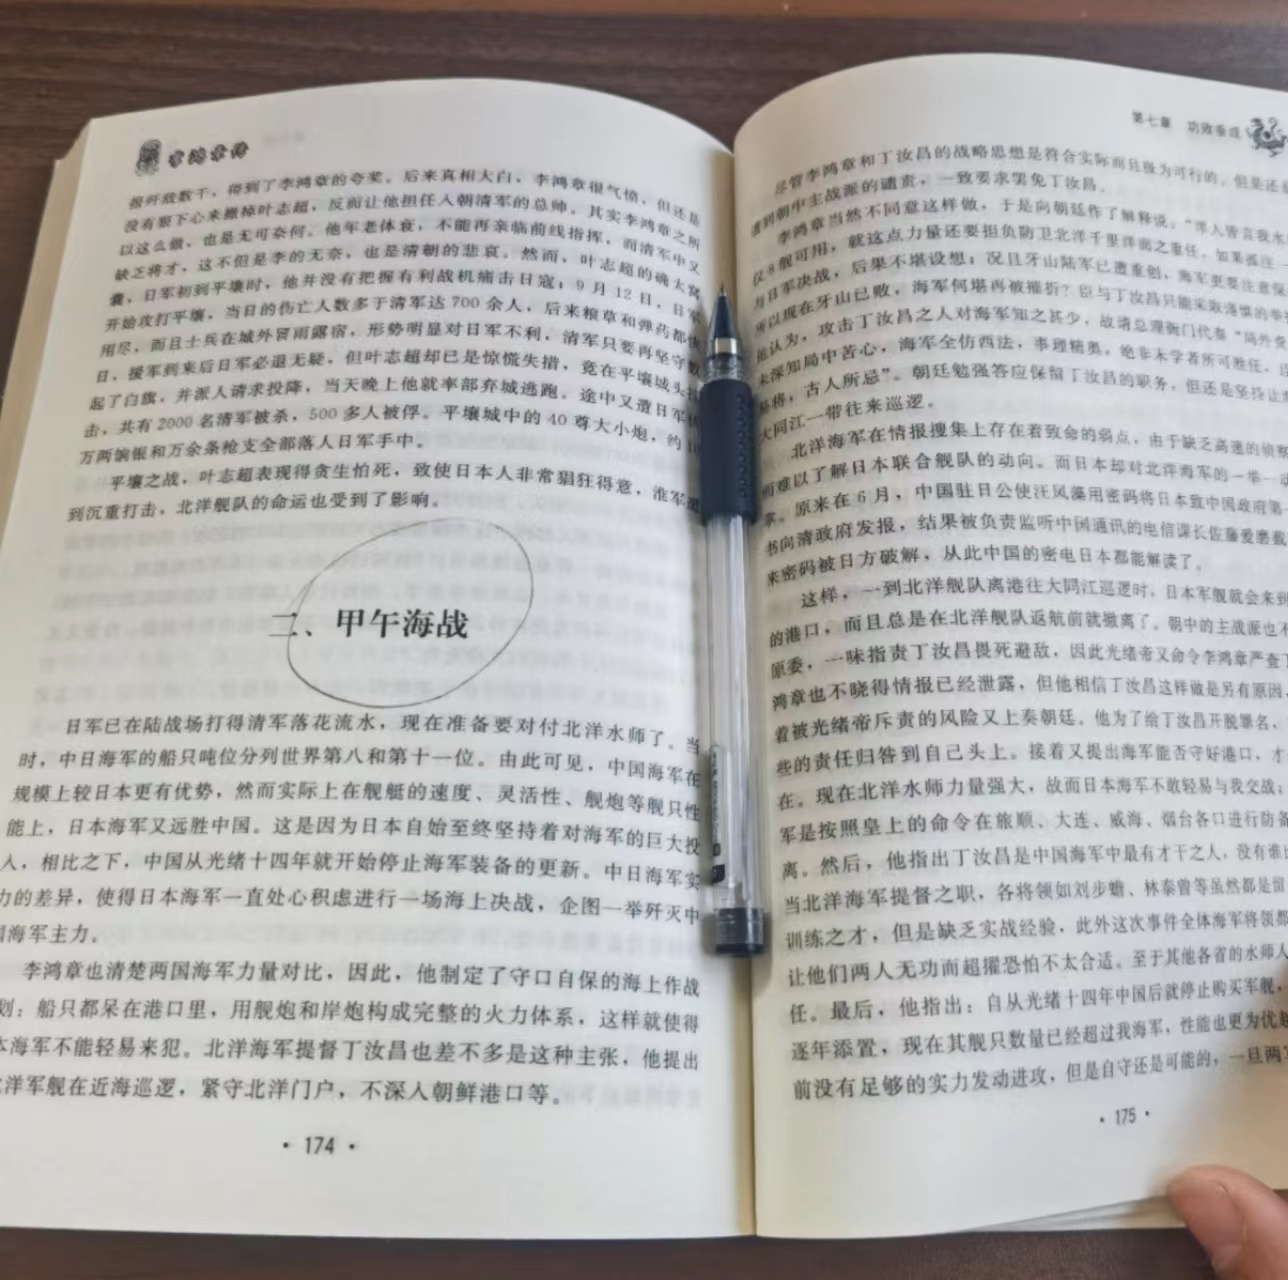 李鸿章传
报歼敌数千，得到了李鸿章的夸奖。后来真相大白，李鸿章很气愤，但还是
没有狠下心来撤掉叶志超，反而让他担任入朝清军的总帅。其实李鸿章之所
以这么做，也是无可奈何。他年老体衰，不能再亲临前线指挥，而清军中又
缺乏将才，这不但是李的无奈，也是清朝的悲哀。然而，叶志超的确太窝
囊，日军初到平壤时，他并没有把握有利战机痛击日寇；9月12日，日军
开始攻打平壤，当日的伤亡人数多于清军达700余人，后来粮草和弹药都快
用尽，而且士兵在城外冒雨露宿，形势明显对日军不利，清军只要再坚守数
日，援军到来后日军必退无疑，但叶志超却已是惊慌失措，竟在平壤城头挂
起了白旗，并派人请求投降，当天晚上他就率部弃城逃跑。途中又遭日军伏
击，共有2000名清军被杀，500多人被俘。平壤城中的40尊大小炮，约10
万两饷银和万余条枪支全部落入日军手中。
平壤之战，叶志超表现得贪生怕死，致使日本人非常猖狂得意，淮军遭
到沉重打击，北洋舰队的命运也受到了影响。
二、甲午海战
日军已在陆战场打得清军落花流水，现在准备要对付北洋水师了。当
时，中日海军的船只吨位分列世界第八和第十一位。由此可见，中国海军在
规模上较日本更有优势，然而实际上在舰艇的速度、灵活性、舰炮等舰只性
能上，日本海军又远胜中国。这是因为日本自始至终坚持着对海军的巨大投
入，相比之下，中国从光绪十四年就开始停止海军装备的更新。中日海军实
力的差异，使得日本海军一直处心积虑进行一场海上决战，企图一举歼灭中
国海军主力。
李鸿章也清楚两国海军力量对比，因此，他制定了守口自保的海上作战
划：船只都呆在港口里，用舰炮和岸炮构成完整的火力体系，这样就使得
本海军不能轻易来犯。北洋海军提督丁汝昌也差不多是这种主张，他提出
北洋军舰在近海巡逻，紧守北洋门户，不深入朝鲜港口等。
·174·
第七章 功败垂成
尽管李鸿章和丁汝昌的战略思想是符合实际而且极为可行的，但是还是
遭到朝中主战派的谴责，一致要求罢免丁汝昌。
李鸿章当然不同意这样做，于是向朝廷作了解释说：“洋人皆言我水
仅8舰可用，就这点力量还要担负防卫北洋千里洋面之重任，如果孤注一
与日军决战，后果不堪设想；况且牙山陆军已遭重创，海军更要注意保
所以现在牙山已败，海军何堪再被摧折？臣与丁汝昌只能采取谨慎的举
他认为，攻击丁汝昌之人对海军知之甚少，故请总理衙门代奏“局外责
未深知局中苦心，海军全仿西法，事理精奥，绝非未学者所可胜任，
易将，古人所忌”。朝廷勉强答应保留丁汝昌的职务，但还是坚持让
大同江一带往来巡逻。
北洋海军在情报搜集上存在着致命的弱点，由于缺乏高速的侦察
而难以了解日本联合舰队的动向。而日本却对北洋海军的一举一动
掌。原来在6月，中国驻日公使汪凤藻用密码将日本致中国政府第一
书向清政府发报，结果被负责监听中国通讯的电信课长佐藤爱磨截
来密码被日方破解，从此中国的密电日本都能解读了。
这样，一到北洋舰队离港往大同江巡逻时，日本军舰就会来到
的港口，而且总是在北洋舰队返航前就撤离了。朝中的主战派也不
原委，一味指责丁汝昌畏死避敌，因此光绪帝又命令李鸿章严查丁
鸿章也不晓得情报已经泄露，但他相信丁汝昌这样做是另有原因，
着被光绪帝斥责的风险又上奏朝廷。他为了给丁汝昌开脱罪名，
些的责任归咎到自己头上。接着又提出海军能否守好港口，才
在。现在北洋水师力量强大，故而日本海军不敢轻易与我交战；
军是按照皇上的命令在旅顺、大连、威海、烟台各口进行防备
离。然后，他指出丁汝昌是中国海军中最有才干之人，没有谁比
当北洋海军提督之职，各将领如刘步蟾、林泰曾等虽然都是留
训练之才，但是缺乏实战经验，此外这次事件全体海军将领都
让他们两人无功而超擢恐怕不太合适。至于其他各省的水师人
任。最后，他指出：自从光绪十四年中国后就停止购买军舰，
逐年添置，现在其舰只数量已经超过我海军，性能也更为优越
前没有足够的实力发动进攻，但是自守还是可能的，一旦两军
·175·